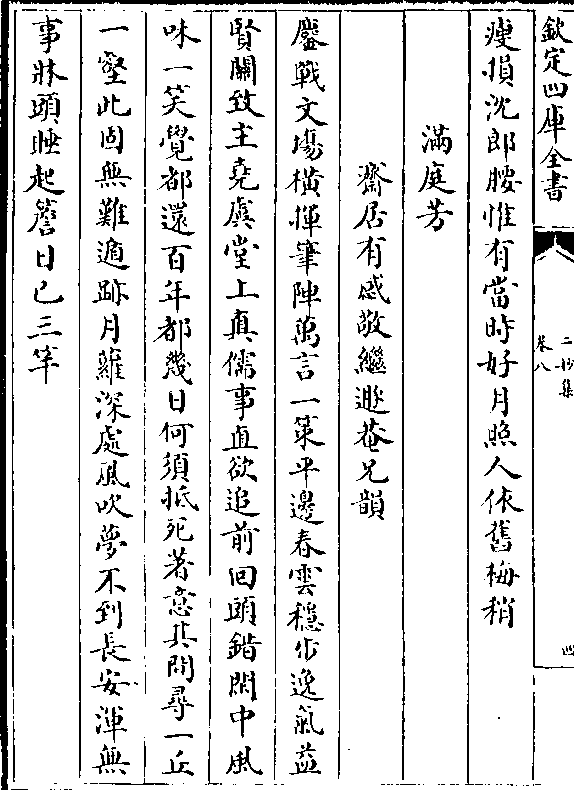 欽定四庫全書
二妙集
卷八
四
瘦損沈郎腰惟有當時好月照人依舊梅稍
滿庭芳
齋居有感敬繼遯菴兄韻
鏖戰文塲橫揮筆陣萬言一策平邊春雲穩步逸氣益
賢關致主堯虞堂上真儒事直欲追前回頭錯閑中風
味一笑覺都還百年都幾日何須抵死著意其間尋一丘
一壑此固無難遁跡月蘿深處風吹夢不到長安渾無
事牀頭睡起簷日已三竿